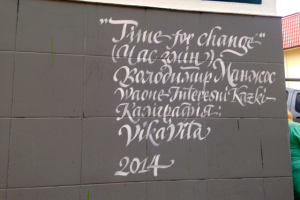 "Time for change"
(Час змін)
Володимир Манжос
Waone Interesni Kazki
Каліграфія:
VikaVita
2014